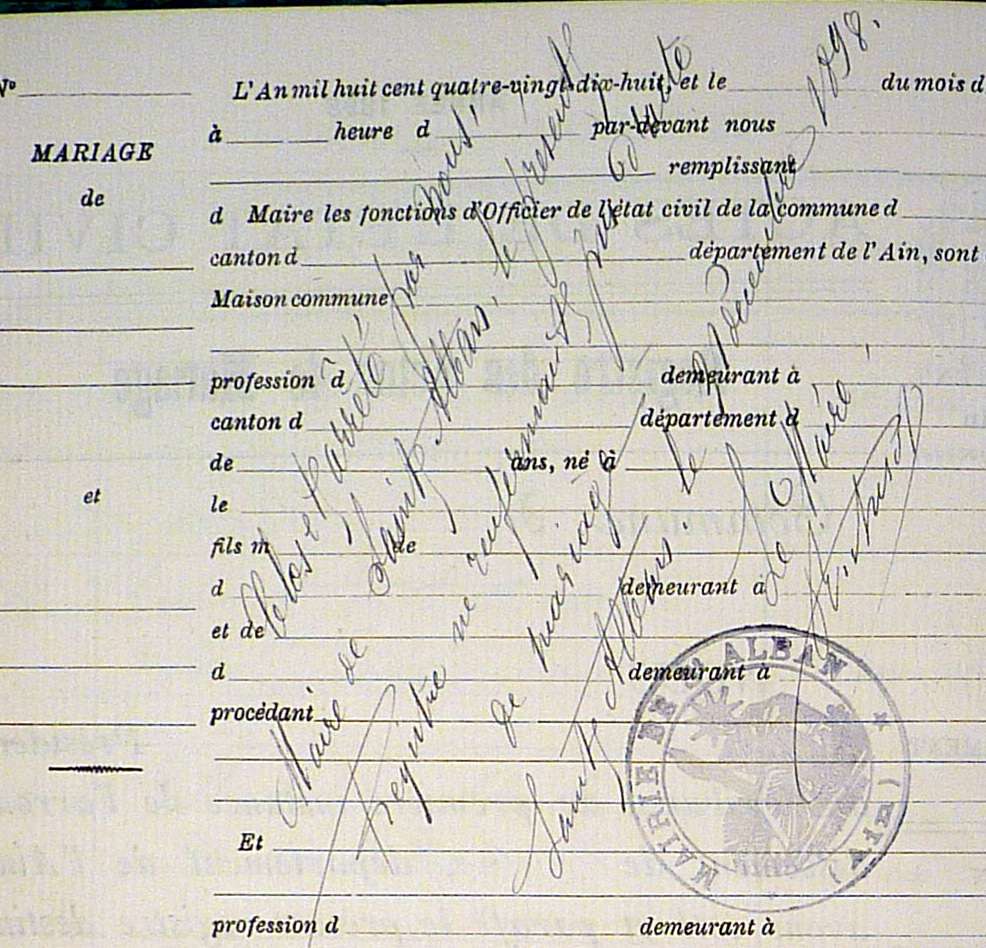 N°
MARIAGE
de
et
L'An mil huit cent quatre-vingt-dix-huit, et le du mois d
à heure d par-devant nous
remplissant
d Maire les fonctions d'Officier de l'état civil de la commune d
canton d département de l'Ain, sont
Maison commune
profession d demeurant à
canton d département d
de ans, né à
le
fils m de
d demeurant à
et de
d demeurant à
procédant
Et
profession d demeurant à
Clos et arrêté par nous,
Maire de Saint-Alban, le présent
Registre ne renfermant pas
de mariage
Saint Alban le 31 décembre 1898.
Le Maire,
MAIRIE DE ST ALBAN (AIN)